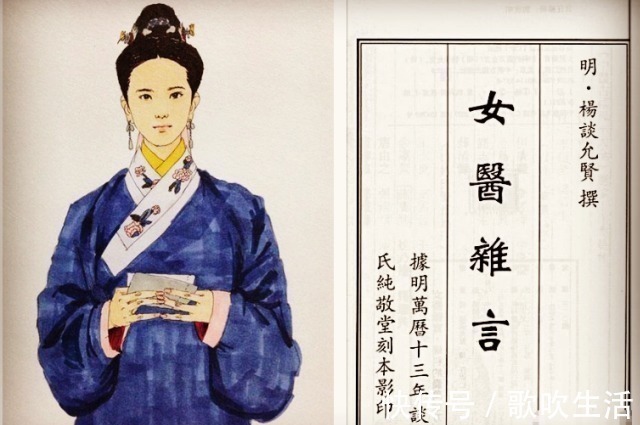 明·楊談允賢 撰
女醫雜言
據明萬曆十三年談
氏純敬堂刻本影印
快传号／歌吹生活